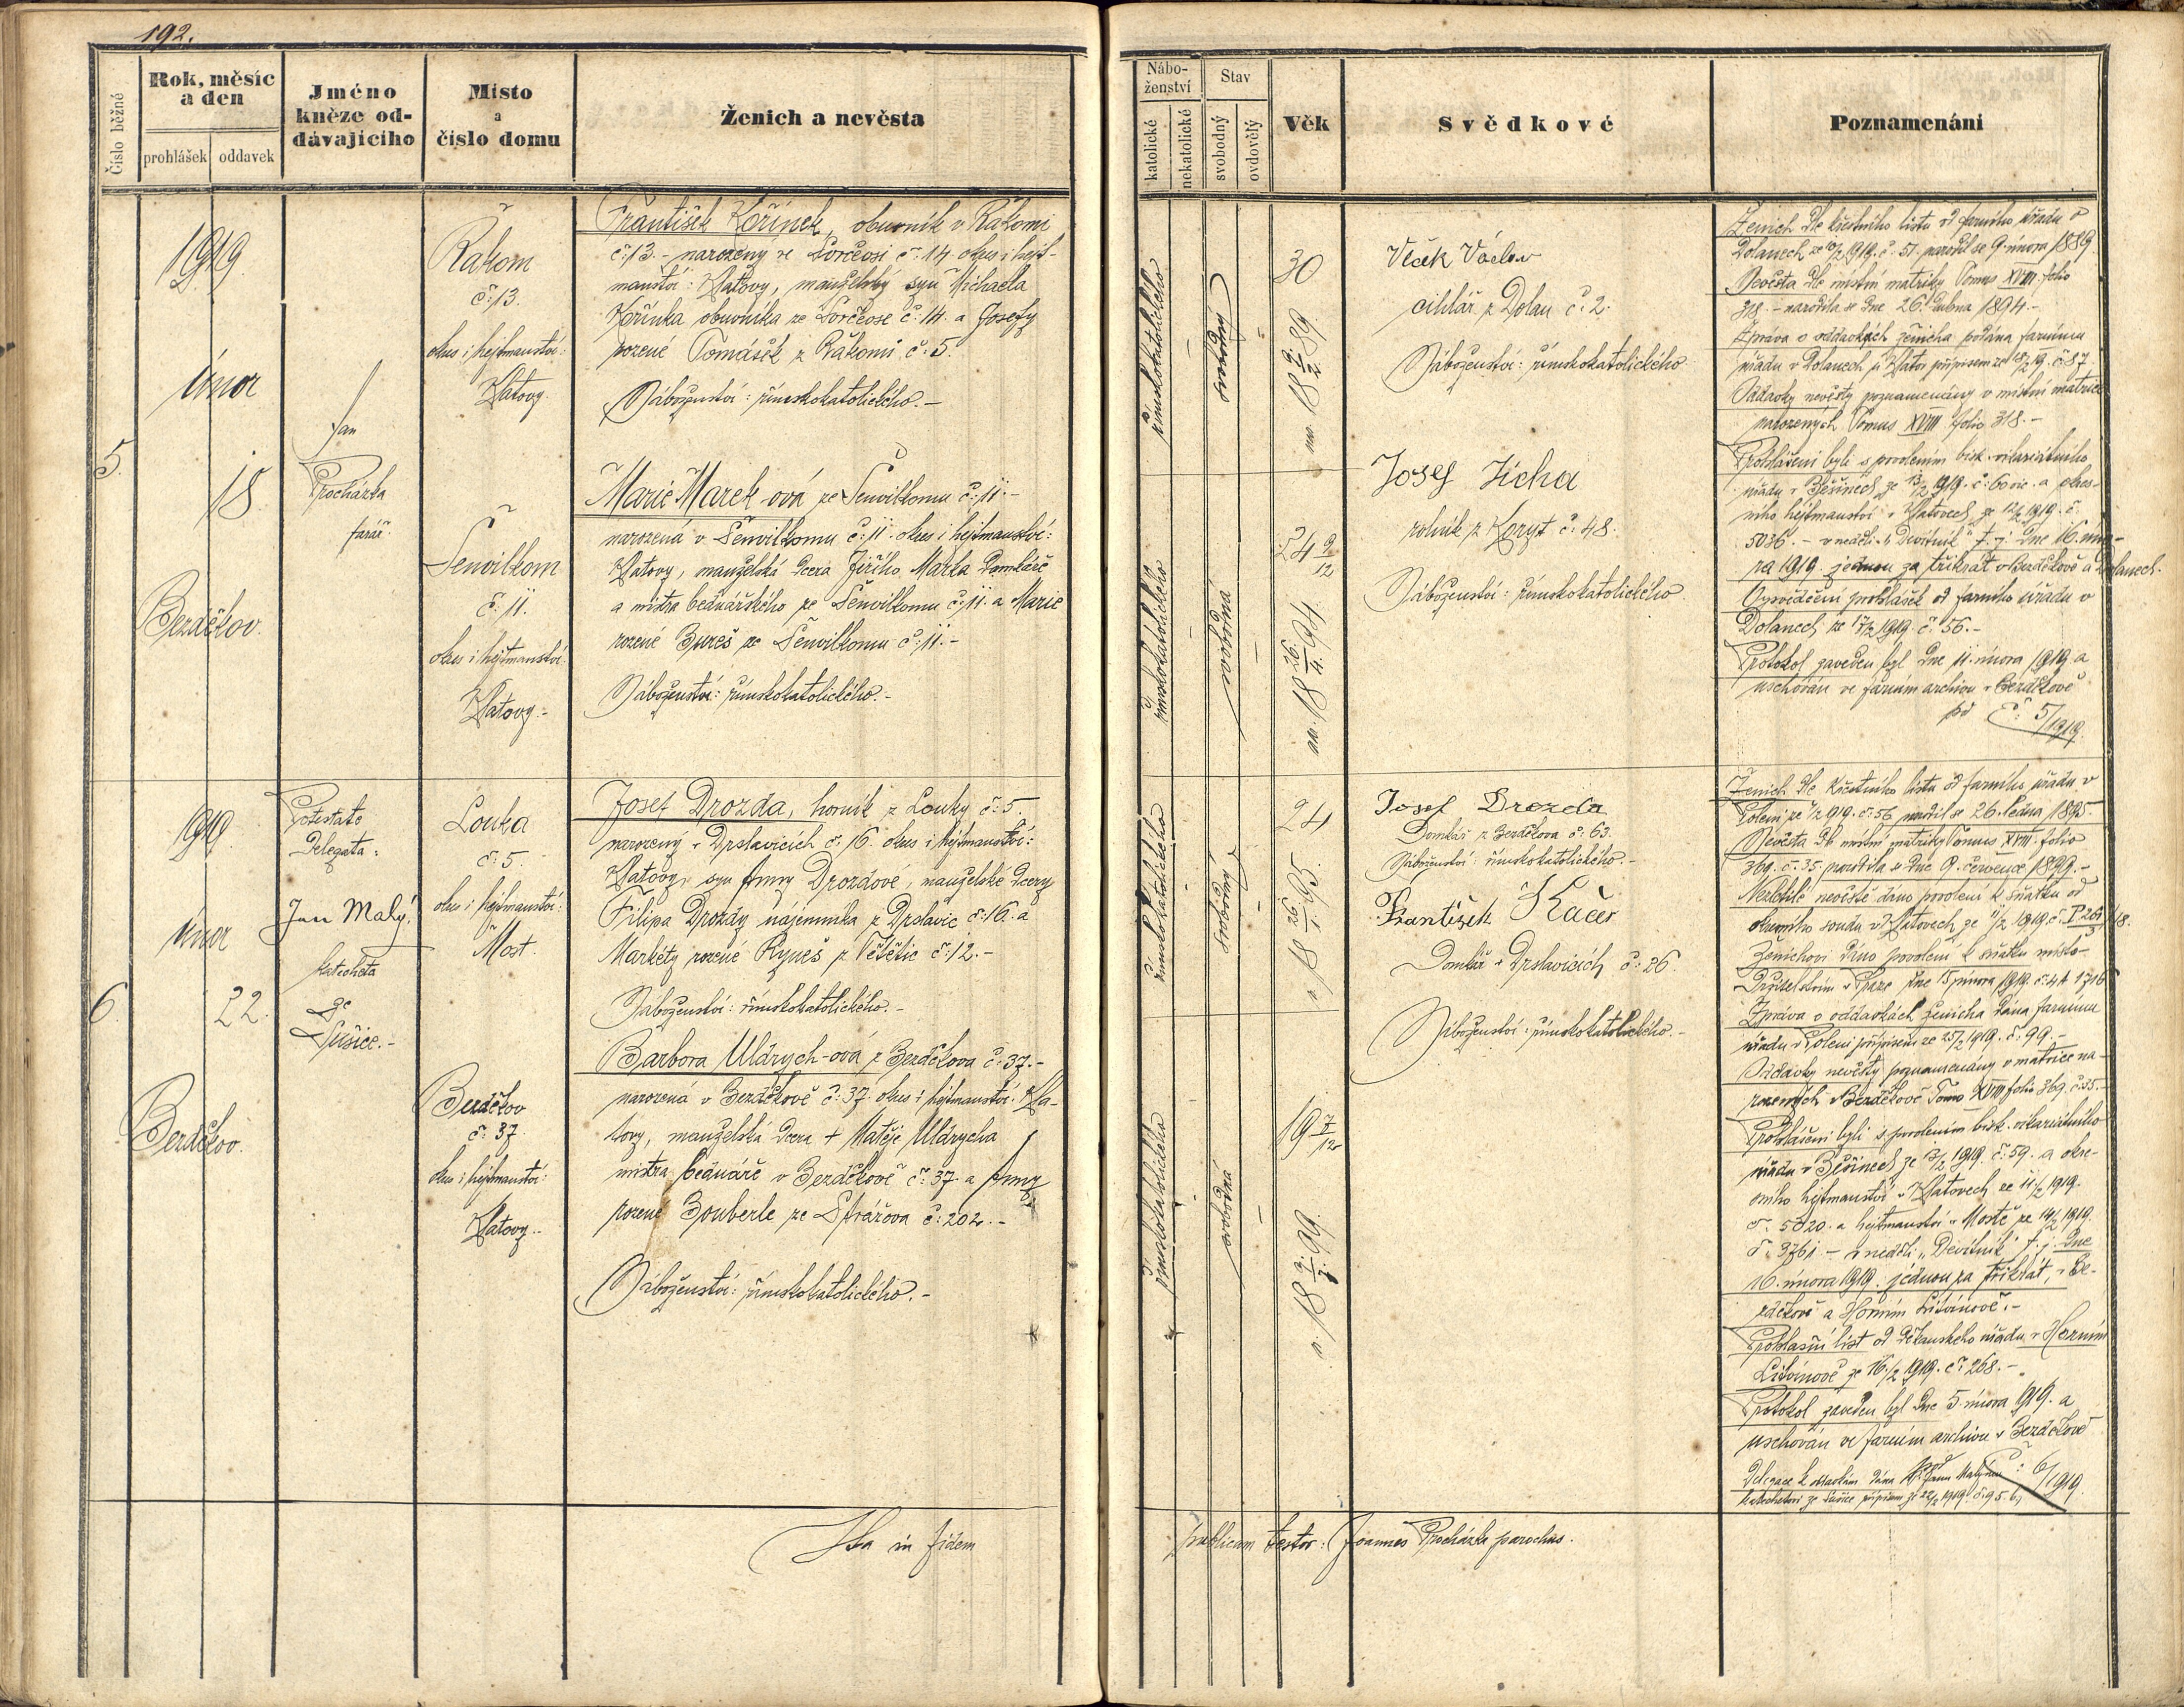 192.
Číslo běžné
Rok, měsíc
a den
prohlášek
oddavek
Jméno
kněze od-
dávajícího
Místo
a
číslo domu
Ženich a nevěsta
Nábo-
ženství
katolické
nekatolické
Stav
svobodný
ovdovělý
Věk
Svědkové
Poznamenání
5.
1919
únor
18
Bezděkov.
Jan
Procházka
farář.
Rakom
č: 13.
okres i hejtmanství:
Klatovy.
František Kořínek, obuvník v Rakomi
č: 13. – narozený ve Sorčeosi č: 14 okres i hejt-
manství: Klatovy, manželský syn Michaela
Kořínka obuvníka ze č: 14. a Josefy
rozené Tomášek z Rakomi č: 5.
Náboženství: římskokatolického. –
Senvilkom
č: 11.
okres i hejtmanství
Klatovy. –
Marie Marek-ová ze Senvilkomu č: 11. –
narozená v Senvilkomu č: 11. okres i hejtmanství:
Klatovy, manželská dcera Jiřího Marka domkáře
a mistra bednářského ze Senvilkomu č: 11. a Marie
rozené Bureš ze Senvilkomu č: 11. –
Náboženství: římskokatolického. –
římskokatolického
svobodný
30
nar. 18 9/2 89
římskokatolického
svobodná
24 9/12
nar. 18 26/4 94.
Vlček Václav
cihlář z Dolan č: 2.
Náboženství: římskokatolického.
Josef Jícha
rolník z Koryt č: 48.
Náboženství: římskokatolického.
Ženich dle křestního listu od farního úřadu v
Dolanech ze 1919. č: 51 narodil se 9. února 1889.
Nevěsta dle místní matriky Tomus XVIII folio
318. – narodila se dne 26. dubna 1894. –
Zpráva o oddavkách ženicha podána farnímu
úřadu v Dolanech u Klatov přípisem ze 18/2 19. č: 87
Oddavky nevěsty poznamenány v místní matrice
narozených Tomus XVIII folio 318. –
Prohlášeni byli s povolením bisk. vikariátního
úřadu v Běšinech ze 13/2 1919. č: 60 vic. a okres-
ního hejtmanství v Klatovech ze 12/2 1919. č.
5036. – v neděli „Devítník“ t. j. dne 16. úno-
ra 1919. jednou za třikrát v Bezděkově a Dolanech.
Vysvědčení prohlášek od farního úřadu v
Dolanech ze 17/2 1919. č: 56. –
Protokol zaveden byl dne 11. února 1919. a
uschován ve farním archivu v Bezděkově
pod č: 5/1919.
6.
1919.
únor
22.
Bezděkov.
Potestate
Delegata:
Jan Malý,
katecheta
ze
Sušice. –
Louka
č: 5.
okres i hejtmanství:
Most.
Josef Drozda, horník z Louky č: 5.
narozený v Drslavicích č: 16. okres i hejtmanství:
Klatovy, syn Anny Drozdové, manželské dcery
Filipa Drozdy nájemníka z Drslavic č: 16. a
Markéty rozené Ryneš z Vetětic č: 12. –
Náboženství: římskokatolického. –
Bezděkov
č: 37.
okres i hejtmanství:
Klatovy. –
Barbora Uldrych-ová z Bezděkova č: 37. –
narozená v Bezděkově č: 37. okres i hejtmanství: Kla-
tovy, manželská dcera + Matěje Uldrycha
mistra bednáře v Bezděkově č: 37. a Anny
rozené Bouberle ze Strážova č: 202. –
Náboženství: římskokatolického. –
římskokatolického
svobodný
24
n. 18 26/1. 95.
římskokatolického
svobodná
19 7/12
n. 18 9/7. 99.
Josef Drozda
Domkář z Bezděkova č: 63.
Náboženství: římskokatolického. –
František Kačer
Domkář v Drslavicích č: 26.
Náboženství: římskokatolického. –
Ženich dle křestního listu od farního úřadu v
Poleni ze 1919. č: 56 narodil se 26. ledna 1895. –
Nevěsta dle místní matriky Tomus XVIII folio
369. č: 35 narodila se dne 9. července 1899. –
Nezletilé nevěstě dáno povolení k sňatku od
okresního soudu v Klatovech ze 1919 č.
Ženichovi dáno povolení k sňatku místo-
držitelstvím v Praze dne 15 února 1919. č: 4A
Zpráva o oddavkách ženicha dána farnímu
úřadu v Poleni přípisem ze 25/2 1919. č: 99. –
Oddavky nevěsty poznamenány v matrice na-
rozených v Bezděkově Tomus XVIII folio 369. č: 35. –
Prohlášeni byli s povolením bisk. vikariátního
úřadu v Běšinech ze 13/2 1919. č: 59. a okre-
sního hejtmanství v Klatovech ze 11/2 1919.
č: 5020. a hejtmanství v Mostě ze 14/2 1919.
č: 3761. – v neděli „Devítník“ t. j. dne
16. února 1919. jednou za třikrát, v Be-
zděkově a Horním Litvínově. –
Prohlašní list od děkanského úřadu v Horním
Litvínově ze 16/2 1919. č: 268. –
Protokol zaveden byl dne 5 února 1919. a
uschován ve farním archivu v Bezděkově
pod č: 6/1919.
Delegace k oddavkám dána Janu Malýmu
katechetovi ze Sušice přípisem ze 22/2 1919. č: 95.
Ita in fidem
publicam testor: Joannes Procházka parochus.